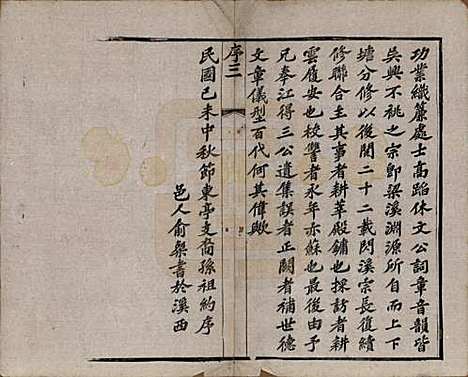 功業織簾處士高蹈休文公詞章音韻皆
吳興不祧之宗卽梁溪淵源所自而上下
塘分修以後閱二十二載閃溪宗長復續
修聯合主其事者耕莘殿鏞也採訪者耕
雲履安也校讐者永年亦蘇也最後由予
兄奉江得三公遺集誤者正闕者補世德
文章儀型百代何其偉歟
序三
民國己未中秋節東亭支裔孫祖約序
邑人俞粲書於溪西